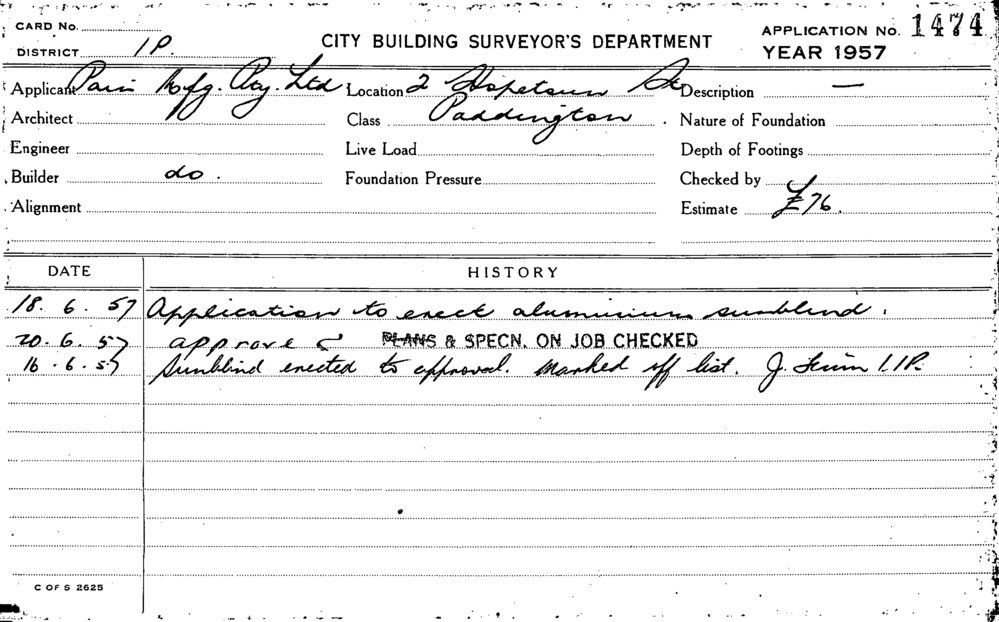 CARD No.
DISTRICT 1P.
CITY BUILDING SURVEYOR'S DEPARTMENT
APPLICATION No. 1474
YEAR 1957
Applicant Mfg. Pty. Ltd Location 2 Hopetoun St Description —
Architect Class Paddington. Nature of Foundation
Engineer Live Load Depth of Footings
Builder do. Foundation Pressure Checked by
Alignment Estimate £76.
DATE HISTORY
18. 6. 57 Application to erect aluminium sunblind.
20. 6. 57 approved PLANS & SPECN. ON JOB CHECKED
16. 6. 57 Sunblind erected to approval. Marked off list. J. 1P.
C OF S 2625